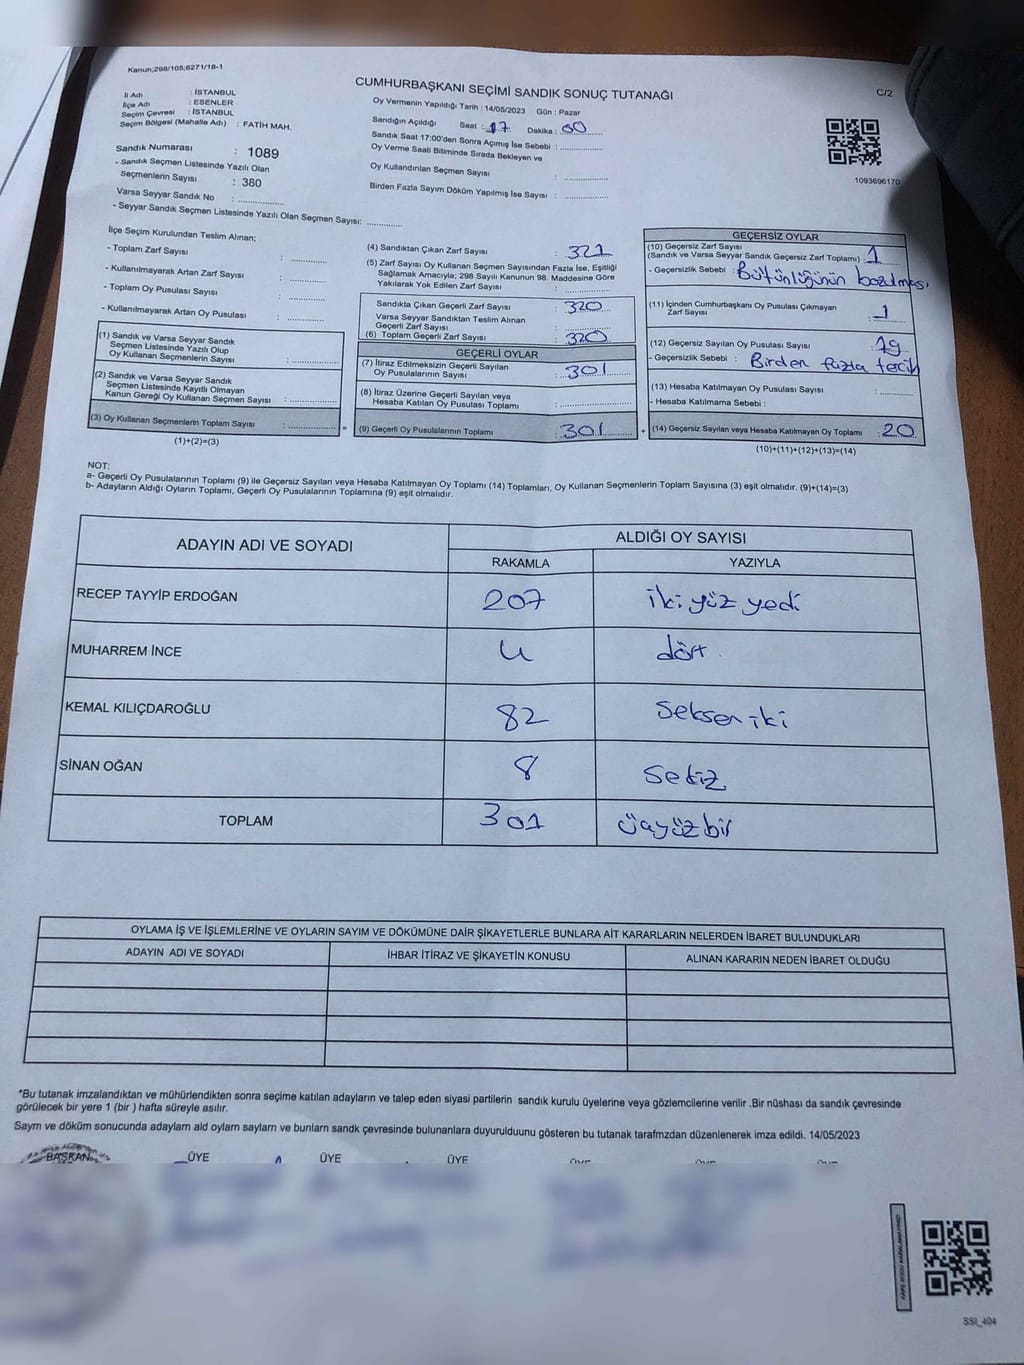 Kanun;298/105;6271/18-1
CUMHURBAŞKANI SEÇİMİ SANDIK SONUÇ TUTANAĞI
C/2
İl Adı : İSTANBUL
İlçe Adı : ESENLER
Seçim Çevresi : İSTANBUL
Seçim Bölgesi (Mahalle Adı) : FATİH MAH.
Oy Vermenin Yapıldığı Tarih : 14/05/2023 Gün : Pazar
Sandığın Açıldığı Saat : 17 Dakika : 00
Sandık Saat 17:00'den Sonra Açımış İse Sebebi :
Oy Verme Saati Bitiminde Sırada Bekleyen ve
Oy Kullandırılan Seçmen Sayısı :
Birden Fazla Sayım Döküm Yapılmış İse Sayısı :
1093696170
Sandık Numarası : 1089
- Sandık Seçmen Listesinde Yazılı Olan
Seçmenlerin Sayısı : 380
Varsa Seyyar Sandık No :
- Seyyar Sandık Seçmen Listesinde Yazılı Olan Seçmen Sayısı:
İlçe Seçim Kurulundan Teslim Alınan;
- Toplam Zarf Sayısı :
- Kullanılmayarak Artan Zarf Sayısı :
- Toplam Oy Pusulası Sayısı :
- Kullanılmayarak Artan Oy Pusulası :
(1) Sandık ve Varsa Seyyar Sandık
Seçmen Listesinde Yazılı Olup
Oy Kullanan Seçmenlerin Sayısı :
(2) Sandık ve Varsa Seyyar Sandık
Seçmen Listesinde Kayıtlı Olmayan
Kanun Gereği Oy Kullanan Seçmen Sayısı :
(3) Oy Kullanan Seçmenlerin Toplam Sayısı :
(1)+(2)=(3)
(4) Sandıktan Çıkan Zarf Sayısı : 321
(5) Zarf Sayısı Oy Kullanan Seçmen Sayısından Fazla İse, Eşitliği
Sağlamak Amacıyla; 298 Sayılı Kanunun 98. Maddesine Göre
Yakılarak Yok Edilen Zarf Sayısı :
Sandıkta Çıkan Geçerli Zarf Sayısı : 320
Varsa Seyyar Sandıktan Teslim Alınan
Geçerli Zarf Sayısı :
(6) Toplam Geçerli Zarf Sayısı : 320
GEÇERLİ OYLAR
(7) İtiraz Edilmeksizin Geçerli Sayılan
Oy Pusulalarının Sayısı : 301
(8) İtiraz Üzerine Geçerli Sayılan veya
Hesaba Katılan Oy Pusulası Toplamı :
= (9) Geçerli Oy Pusulalarının Toplamı : 301
GEÇERSİZ OYLAR
(10) Geçersiz Zarf Sayısı
(Sandık ve Varsa Seyyar Sandık Geçersiz Zarf Toplamı) : 1
- Geçersizlik Sebebi : Bütünlüğünün bozulması
(11) İçinden Cumhurbaşkanı Oy Pusulası Çıkmayan
Zarf Sayısı : 1
(12) Geçersiz Sayılan Oy Pusulası Sayısı : 19
- Geçersizlik Sebebi : Birden fazla tercih
(13) Hesaba Katılmayan Oy Pusulası Sayısı :
- Hesaba Katılmama Sebebi :
+ (14) Geçersiz Sayılan veya Hesaba Katılmayan Oy Toplamı : 20
(10)+(11)+(12)+(13)=(14)
NOT:
a- Geçerli Oy Pusulalarının Toplamı (9) ile Geçersiz Sayılan veya Hesaba Katılmayan Oy Toplamı (14) Toplamları, Oy Kullanan Seçmenlerin Toplam Sayısına (3) eşit olmalıdır. (9)+(14)=(3)
b- Adayların Aldığı Oyların Toplamı, Geçerli Oy Pusulalarının Toplamına (9) eşit olmalıdır.
ADAYIN ADI VE SOYADI ALDIĞI OY SAYISI
RAKAMLA YAZIYLA
RECEP TAYYİP ERDOĞAN 207 iki yüz yedi
MUHARREM İNCE 4 dört
KEMAL KILIÇDAROĞLU 82 seksen iki
SİNAN OĞAN 8 sekiz
TOPLAM 301 üçyüz bir
OYLAMA İŞ VE İŞLEMLERİNE VE OYLARIN SAYIM VE DÖKÜMÜNE DAİR ŞİKAYETLERLE BUNLARA AİT KARARLARIN NELERDEN İBARET BULUNDUKLARI
ADAYIN ADI VE SOYADI İHBAR İTİRAZ VE ŞİKAYETİN KONUSU ALINAN KARARIN NEDEN İBARET OLDUĞU
*Bu tutanak imzalandıktan ve mühürlendikten sonra seçime katılan adayların ve talep eden siyasi partilerin sandık kurulu üyelerine veya gözlemcilerine verilir .Bir nüshası da sandık çevresinde
görülecek bir yere 1 (bir ) hafta süreyle asılır.
Saym ve döküm sonucunda adaylarn ald oylarn saylarn ve bunlarn sandk çevresinde bulunanlara duyurulduunu gösteren bu tutanak tarafmzdan düzenlenerek imza edildi. 14/05/2023
BAŞKAN ÜYE ÜYE ÜYE
SSI_404